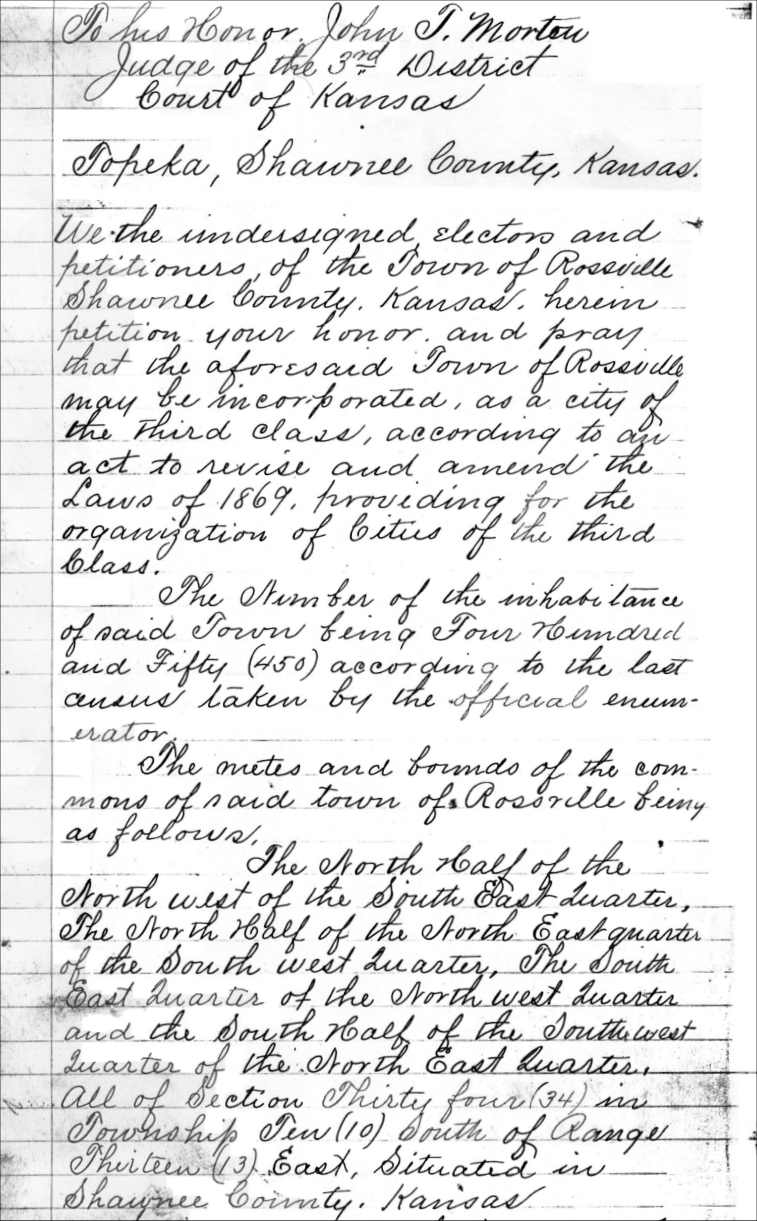 To his Honor. John T. Morton
Judge of the 3rd District
Court of Kansas
Topeka, Shawnee County, Kansas.
We the undersigned, electors and
petitioners, of the Town of Rossville
Shawnee County. Kansas. herein
petition your honor. and pray
that the aforesaid Town of Rossville
may be incorporated, as a city of
the third class, according to an
act to revise and amend the
Laws of 1869. providing for the
organization of Cities of the third
Class.
The Number of the inhabitance
of said Town being Four Hundred
and Fifty (450) according to the last
census taken by the official enum-
erator.
The metes and bounds of the com-
mons of said town of Rossville being
as follows.
The North Half of the
North west of the South East Quarter,
The North Half of the North East quarter
of the South west Quarter, The South
East Quarter of the North west Quarter
and the South Half of the South west
Quarter of the North East Quarter.
All of Section Thirty four (34) in
Township Ten (10) South of Range
Thirteen (13) East, Situated in
Shawnee County. Kansas